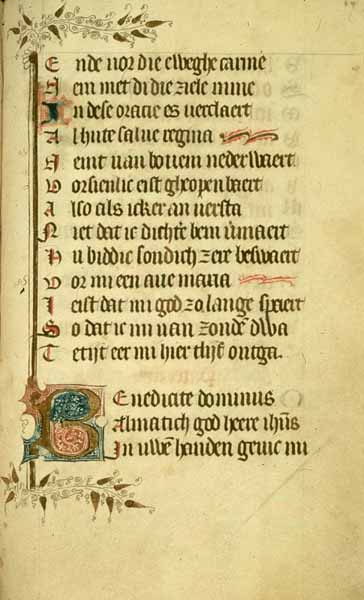 Ende uor die eweghe carine
Nem met di die ziele mine
In dese oratie es uerclaert
Al hute salue regina
Nemt uan bouem nederwaert
Vorsienlic eist gheopenbaert
Also als icker an uersta
Niet dat ic dichtr̄ bem v̄maert
Nu biddic sondich zere beswaert
Vor mi een aue maria
Ieist dat mi god zo lange spaert
So dat ic mi uan zond̄ dwa
Tetijt eer mi hier tlijf ontga.
Benedicate dominus
Almatich god heere ih̄us
In uwē handen geuic mi